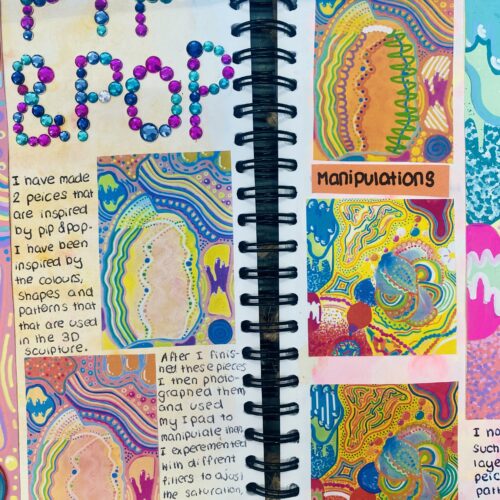 PIP
&POP
I have made
2 peices that
are inspired
by pip & pop.
I have been
inspired by
the colours,
shapes and
patterns that
that are used
in the 3D
sculpture.
After I finis-
ned these pieces
I then photo-
graphed them
and used
my Ipad to
manipulate them
I experemented
with diffrent
filters to ajust
the saturation,
MANIPULATIONS
I no
such
laye
peic
pat